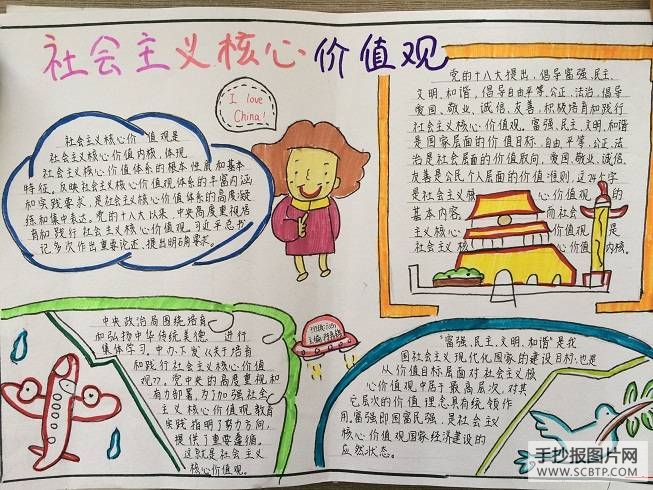 社会主义核心价值观
I love
China!
社会主义核心价值观是
社会主义核心价值内核,体现
社会主义核心价值体系的根本性质和基本
特征,反映社会主义核心价值观体系的丰富内涵
和实践要求,是社会主义核心价值体系的高度凝
练和集中表达。党的十八大以来,中央高度重视培
育和践行社会主义核心价值观。习近平总书
记多次作出重要论述、提出明确要求。
党的十八大提出,倡导富强、民主、
文明、和谐,倡导自由、平等、公正、法治,倡导
爱国、敬业、诚信、友善,积极培育和践行
社会主义核心价值观。富强、民主、文明、和谐
是国家层面的价值目标,自由、平等、公正、法
治是社会层面的价值取向,爱国、敬业、诚信、
友善是公民个人层面的价值准则,这24个字
是社会主义核心价值观的
基本内容。而社会
主义核心价值观是
社会主义核心价值内核。
中央政治局围绕培育
和弘扬中华传统美德进行
集体学习,中办下发《关于培育
和践行社会主义核心价值
观》。党中央的高度重视和
有力部署,为了加强社会
主义核心价值观教育
实践指明了努力方向,
提供了重要遵循。
这就是社会主义
核心价值观。
"富强、民主、文明、和谐"是我
国社会主义现代化国家的建设目标,也是
从价值目标层面对社会主义核
心价值观中居于最高层次,对其
它层次的价值理念具有统领作
用。富强即国富民强,是社会主义
核心价值观国家经济建设的
应然状态。
手抄报图片网
WWW.SCBTP.COM